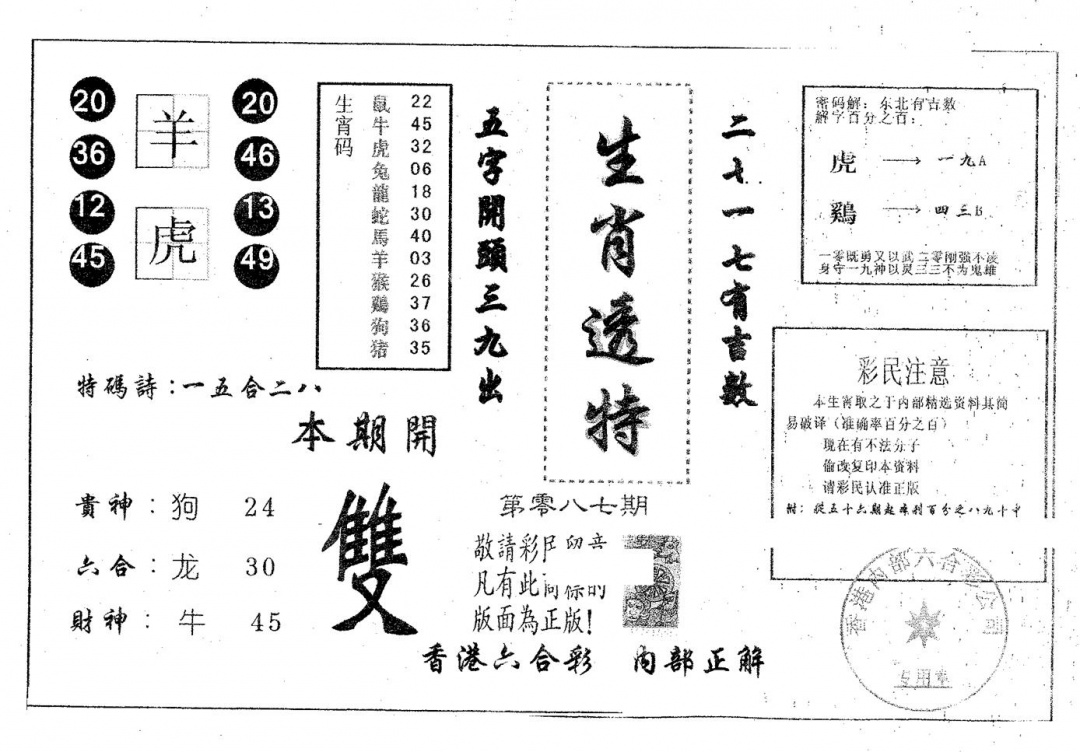 20
36
12
45
羊
虎
20
46
13
49
生宵码
鼠 22
牛 45
虎 32
兔 06
龍 18
蛇 30
馬 40
羊 03
猴 26
鷄 37
狗 36
猪 35
五字開頭三九出
生肖透特
二七一七有吉數
密码解：东北有吉数
解字百分之百：
虎 → 一九A
鷄 → 四三B
一零既勇又以武 二零刚强不凌
身守一九神以灵 三三不为鬼雄
彩民注意
本生宵取之于内部精选资料其简
易破译（准确率百分之百）
现在有不法分子
偷改复印本资料
请彩民认准正版
附：從五十六期起库利百分之八九十中
特碼詩：一五合二八
本期開
雙
貴神：狗 24
六合：龙 30
財神：牛 45
第零八七期
敬請彩
凡有此 的
版面為正版！
香港六合彩 内部正解
香港内部六合 公司
专用章